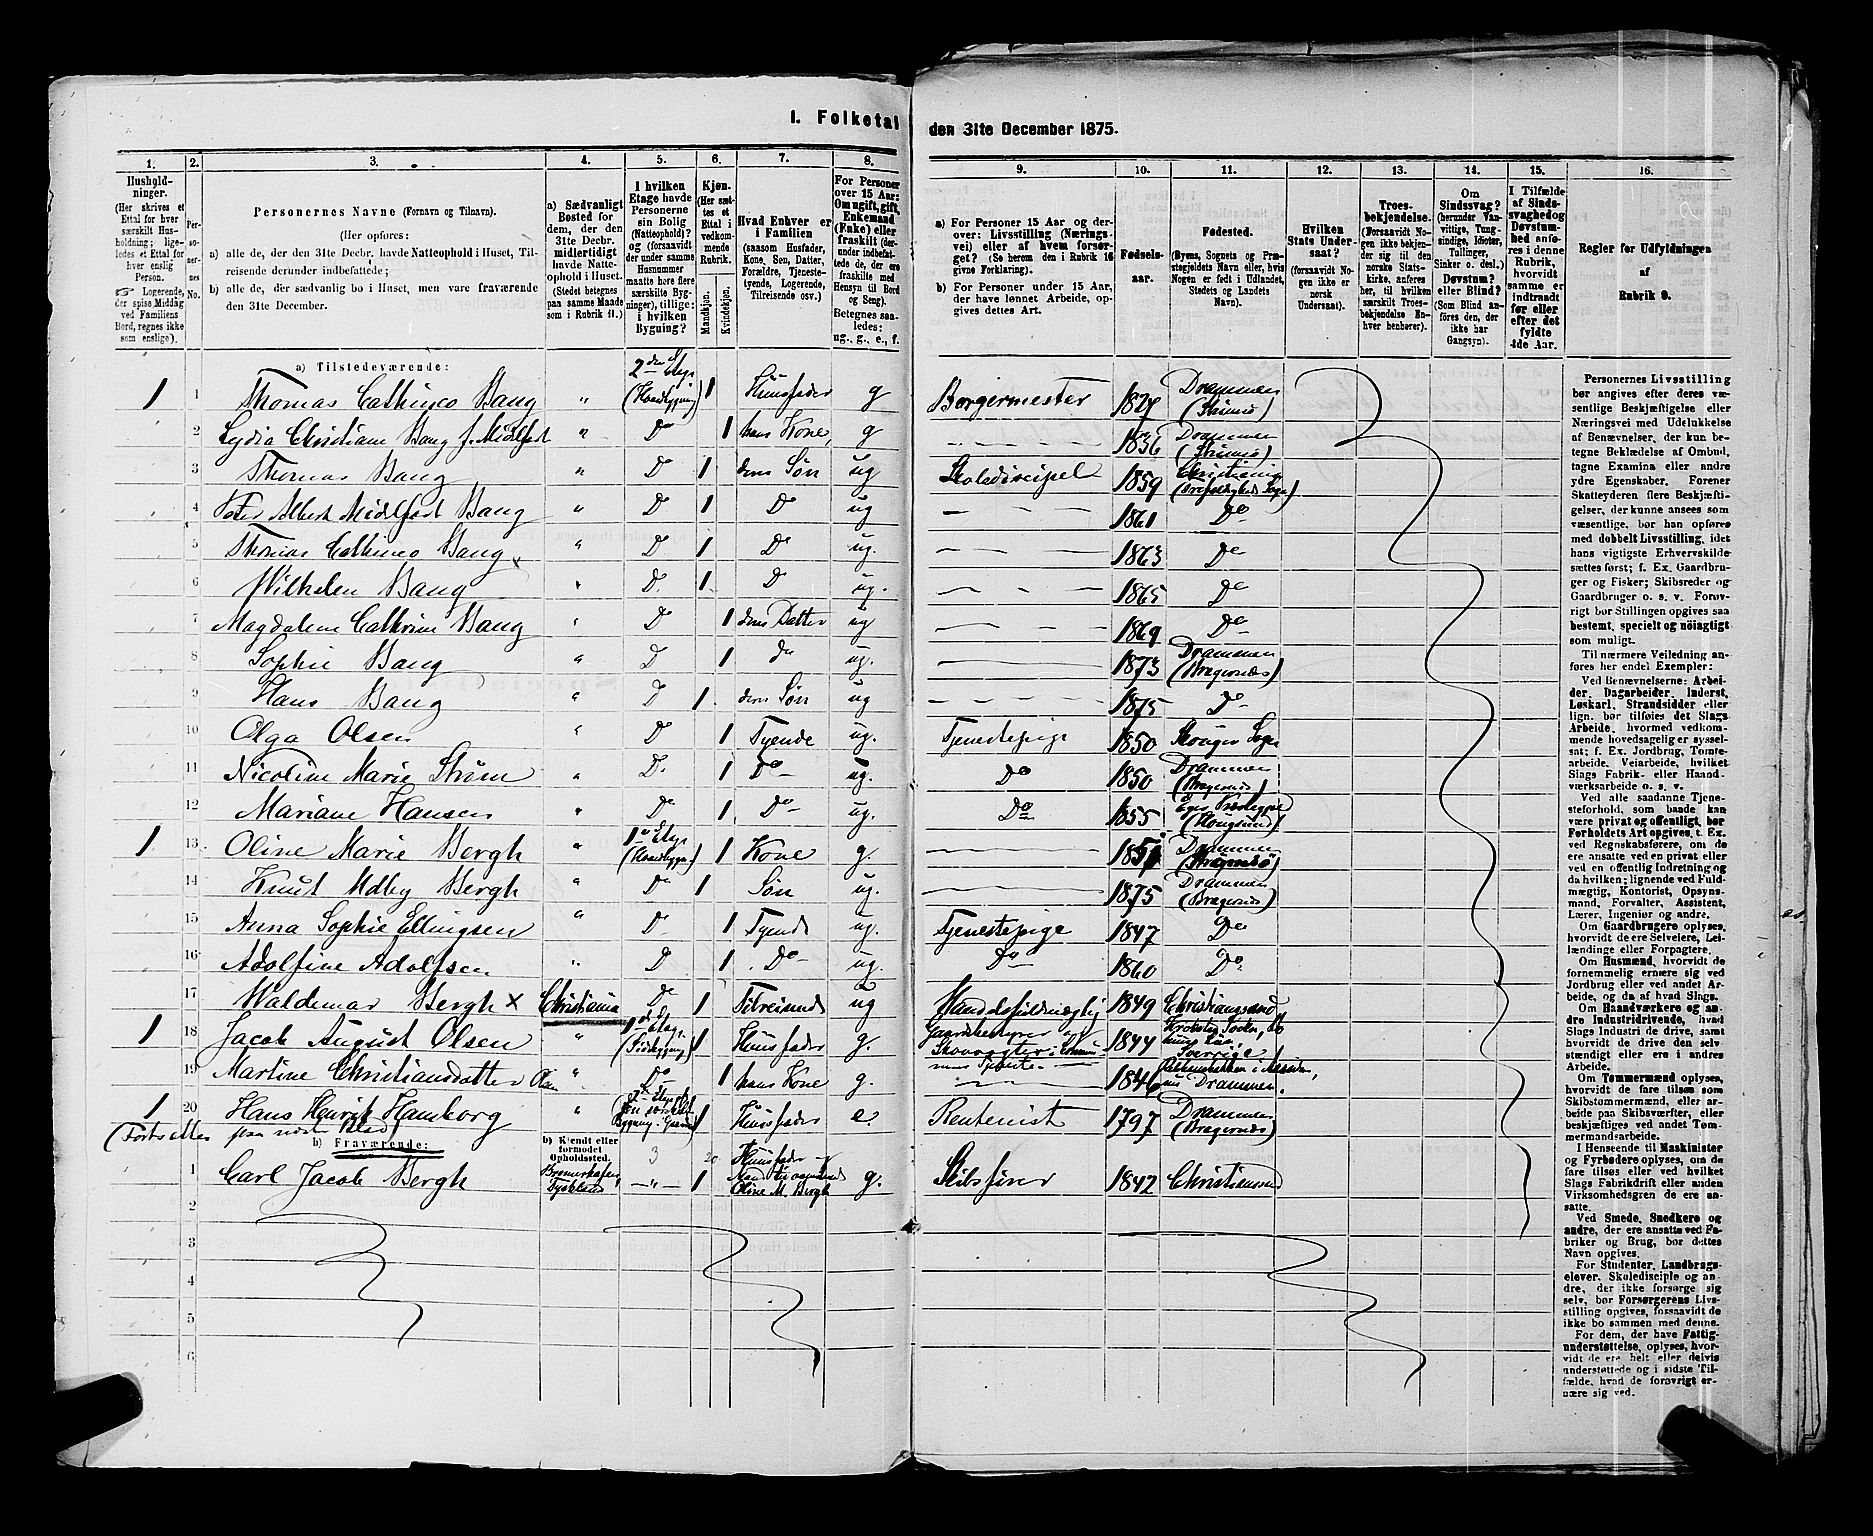 I. Folketal den 31te December 1875.
1. 2. 3. 4. 5. 6. 7. 8. 9. 10. 11. 12. 13. 14. 15. 16.
Husholdninger.
(Her skrives et Ettal for hver særskilt Husholdning; ligeledes et Ettal for hver enslig Person.
☞ Logerende, der spise Middag ved Familiens Bord, regnes ikke som enslige).
Personernes No.
Personernes Navne (Fornavn og Tilnavn).
(Her opføres:
a) alle de, der den 31te Decbr. havde Natteophold i Huset, Tilreisende derunder indbefattede;
b) alle de, der sædvanlig bo i Huset, men vare fraværende den 31te December.
a) Sædvanligt Bosted for dem, der den 31te Decbr. midlertidigt havde Natteophold i Huset. (Stedet betegnes paa samme Maade som i Rubrik 11.)
I hvilken Etage havde Personerne sin Bolig (Natteophold)? og (forsaavidt der under samme Husnummer maatte høre flere særskilte Bygninger), tillige: i hvilken Bygning?
Kjøn. (Her sættes et Ettal i vedkommende Rubrik.
Mandkjøn. Kvindekjøn.
Hvad Enhver er i Familien
(saasom Husfader, Kone, Søn, Datter, Forældre, Tjenestetyende, Logerende, Tilreisende osv.)
For Personer over 15 Aar: Om ugift, gift, Enkemand (Enke) eller fraskilt (derunder indbefattede de, der ere fraskilte med Hensyn til Bord og Seng). Betegnes saaledes: ug., g., e., f.
a) For Personer 15 Aar og derover: Livsstilling (Næringsvei) eller af hvem forsørget? (Se herom den i Rubrik 16 givne Forklaring).
b) For Personer under 15 Aar, der have lønnet Arbeide, opgives dettes Art.
Fødselsaar.
Fødested.
(Byens, Sognets og Præstegjeldets Navn eller, hvis Nogen er født i Udlandet, Stedets og Landets Navn).
Hvilken Stats Undersaat?
(forsaavidt Nogen ikke er norsk Undersaat).
Troesbekjendelse.
(Forsaavidt Nogen ikke bekjender sig til den norske Statskirke, anføres her, til hvilken særskilt Troesbekjendelse Enhver henhører).
Om Sindssvag? (herunder Vanvittige, Tungsindige, Idioter, Tullinger, Sinker o. desl.) Døvstum? eller Blind? (Som Blind anføres den, der ikke har Gangsyn).
I Tilfælde af Sindssvaghed og Døvstumhed anføres i denne Rubrik, hvorvidt samme er indtraadt før eller efter det fyldte 4de Aar.
Regler for Udfyldningen af Rubrik 9.
a) Tilstedeværende:
1 1 Thomas Cathinco Bang " 2den Etage (Hovedbygning) 1 Huusfader g Borgermester 1827 Drammen (Strømsø)
2 Lydia Christiane Bang f. Midlfart " Do 1 hans Kone, g 1836 Drammen (Strømsø)
3 Thomas Bang " D 1 deres Søn ug Skolediscipel 1859 Christiania (Trefoldigheds Sogn)
4 Peter Albert Midlfart Bang " D 1 D ug 1861 Do
5 Thomas Cathinco Bang " D 1 Do ug. 1863 Do
6 Wilhelm Bang " D. 1 D ug. 1865 Do
7 Magdalene Cathrine Bang " D 1 deres Datter ug 1869 Do
8 Sophie Bang " D 1 do ug. 1873 Drammen (Bragernæs)
9 Hans Bang " D 1 deres Søn ug 1875 Do
10 Olga Olsen " Do 1 Tyende ug. Tjenestepige 1850 Skouger Sogn
11 Nicoline Marie Strøm " D. 1 Do ug. Do 1850 Drammen (Bragernæs)
12 Mariane Hansen " Do 1 Do ug. Do 1855 Egers Præstegjeld (Hougsund)
1 13 Oline Marie Bergh " 1ste Etage (Hovedbygn.) 1 Kone g. Drammen (Strømsø)
14 Knut Udby Bergh " Do 1 Søn ug. 1875 Drammen (Bragernæs)
15 Anna Sophie Ellingsen " D 1 Tyende ug. Tjenestepige 1847 Do
16 Adolfine Adolfsen " D 1 Do ug. Do 1860 Do
17 Waldemar Bergh x Christiania Do 1 Tilreisende ug Handelsfuldmægtig 1849 Christianssand
1 18 Jacob August Olsen " 1ste Etage (Sidebygning) 1 Huusfader g. 1844 Sverrige
19 Martine Christiansdatter " Do 1 hans Kone g. 1846 Drammen.
1 20 Hans Henrik Hamborg " 1 Huusfader e. Rentenist 1797 Drammen (Bragernæs)
(Fortsættes paa næste Blad)
b) Fraværende:
b) Kjendt eller formodet Opholdssted.
3 20
1 Carl Jacob Bergh Bremerhafen, Tydskland " 1 Huusfader Oline M. Bergh g. Skibsfører 1842 Christianssand
2
3
4
5
6
Personernes Livsstilling bør angives efter deres væsentlige Beskjæftigelse eller Næringsvei med Udelukkelse af Benævnelser, der kun betegne Beklædelse af Ombud, tagne Examina eller andre ydre Egenskaber. Forener Skatteyderen flere Beskjæftigelser, der kunne ansees som væsentlige, bør han opføres med dobbelt Livsstilling, idet hans vigtigste Erhvervskilde sættes først; f. Ex. Gaardbruger og Fisker; Skibsreder og Gaardbruger o. s. v. Forøvrigt bør Stillingen opgives saa bestemt, specielt og nøiagtigt som muligt.
Til nærmere Veiledning anføres her endel Exempler:
Ved Benævnelserne: Arbeider, Dagarbeider, Inderst, Løskarl, Strandsidder eller lign. bør tilføies det Slags Arbeide, hvormed vedkommende hovedsagelig er sysselsat; f. Ex. Jordbrug, Tomtearbeide, Veiarbeide, hvilket Slags Fabrik- eller Haandværksarbeide o. s. v.
Ved alle saadanne Tjenesteforhold, som baade kan være privat og offentligt, bør Forholdets Art opgives, t. Ex. ved Regnskabsførere, om de ere ansatte ved en privat eller ved en offentlig Indretning og da hvilken; lignende ved Fuldmægtig, Kontorist, Opsynsmand, Forvalter, Assistent, Lærer, Ingeniør og andre.
Om Gaardbrugere oplyses, hvorvidt de ere Selveiere, Leilændinge eller Forpagtere
Om Husmænd, hvorvidt de fornemmelig ernære sig ved Jordbrug eller ved andet Arbeide, og da af hvad Slags.
Om Haandværkere og andre Industridrivende, hvad Slags Industri de drive, samt hvorvidt de drive den selvstændigt eller ere i andres Arbeide.
Om Tømmermænd oplyses, hvorvidt de fare tilsøs som Skibstømmermænd, eller arbeide paa Skibsværfter, eller beskjæftiges ved andet Tømmermandsarbeide.
I Henseende til Maskinister og Fyrbødere oplyses, om de fare tilsøs eller ved hvilket Slags Fabrikdrift eller anden Virksomhed de ere ansatte.
Ved Smede, Snedkere og andre, der ere ansatte ved Fabriker og Brug, bør dettes Navn opgives.
For Studenter, Landbrugselever, Skoledisciple og andre, der ikke forsørge sig selv, bør Forsørgerens Livsstilling opgives, forsaavidt de ikke bo sammen med denne.
For dem, der have Fattigunderstøttelse, oplyses, hvorvidt de ere helt eller delvis understøttede og i sidste Tilfælde, hvad de forøvrigt ernære sig ved.